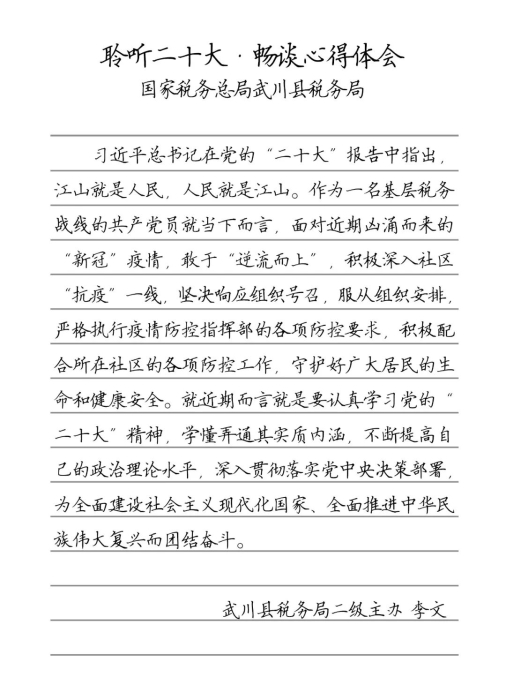 聆听二十大·畅谈心得体会
国家税务总局武川县税务局
习近平总书记在党的“二十大”报告中指出，
江山就是人民，人民就是江山。作为一名基层税务
战线的共产党员就当下而言，面对近期凶涌而来的
“新冠”疫情，敢于“逆流而上”，积极深入社区
“抗疫”一线，坚决响应组织号召，服从组织安排，
严格执行疫情防控指挥部的各项防控要求，积极配
合所在社区的各项防控工作，守护好广大居民的生
命和健康安全。就近期而言就是要认真学习党的“
二十大”精神，学懂弄通其实质内涵，不断提高自
己的政治理论水平，深入贯彻落实党中央决策部署，
为全面建设社会主义现代化国家、全面推进中华民
族伟大复兴而团结奋斗。
武川县税务局二级主办 李文